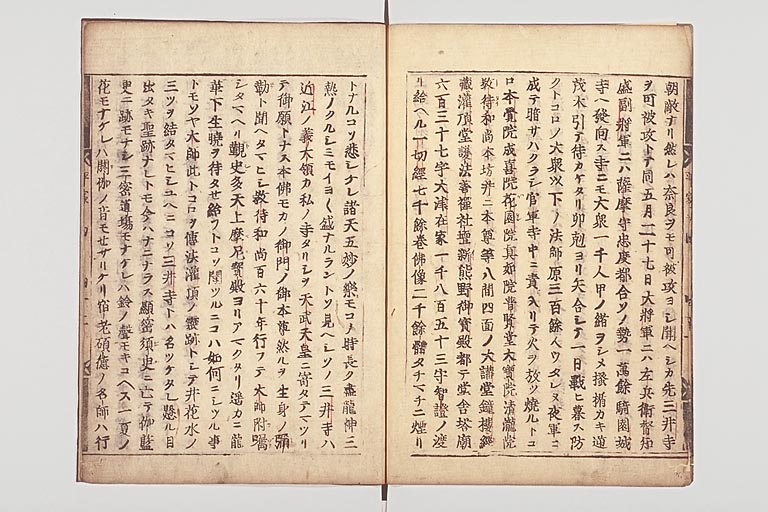 朝敵ナリ然レハ奈良ヲモ可被攻ヨシ聞ヘシカ先三井寺
ヲ可被攻トテ同五月二十七日大將軍ニハ左兵衛督知
盛副將軍ニハ薩摩守忠度都合ソノ勢一萬餘騎園城
寺ヘ發向ス寺ニモ大衆一千人甲ノ緒ヲシメ掻楯カキ逆
茂木引テ待カケタリ卯剋ヨリ矢合シテ一日戰ヒ暮ス防
クトコロノ大衆以下ノ法師原三百餘人ウタレヌ夜軍ニ
成テ暗サハクラシ官軍寺中ニ責入リテ火ヲ放ツ燒ルトコ
ロ本覺院成喜院花園院真如院普賢堂大寳院清瀧院
教待和尚本坊并ニ本尊等八間四面ノ大講堂鐘樓經
藏灌頂堂護法善神社壇新熊野御寳殿都テ堂舎塔廟
六百三十七宇大津在家一千八百五十三宇智證ノ渡
リ給ヘル一切經七千餘巻佛像二千餘體タチマチニ煙リ
トナルコソ悲シケレ諸天五妙ノ樂モコノ時長ク盡龍神三
熱ノクルシミモイヨ〱盛ナルラントソ見ヘシソノ三井寺ハ
近江ノ義大領カ私ノ寺タリシヲ天武天皇ニ寄タテマツリ
テ御願トナス本佛モカノ御門ノ御本尊然ルヲ生身ノ彌
勒ト聞ヘタマヒシ教待和尚百六十年行フテ大師附囑
シタマヘリ覩史多天上摩尼寳殿ヨリアマクタリ遥カニ龍
華下生曉ヲ待タセ給フトコソ聞ツルニコハ如何ニシツル事
トモソヤ大師此トコロヲ傳法灌頂ノ靈跡トシテ井花水ノ
三ツヲ結タマヒシユヘニコソ三井寺トハ名ツケタレ懸ル目
出タキ聖跡ナレトモ今ハナニナラス顯密須臾ニ亡テ伽藍
更ニ跡モナシ三密道場モナケレハ鈴ノ聲モキコヘス一夏ノ
花モナケレハ閼伽ノ音モセサリケリ宿老碩德ノ名師ハ行